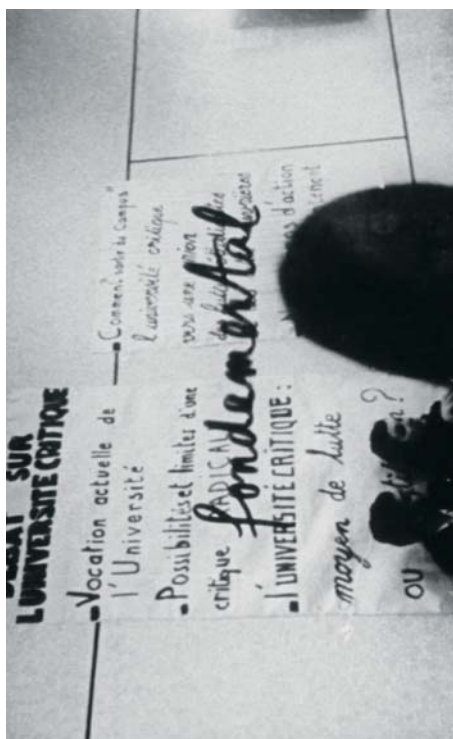 DEBAT SUR
L'UNIVERSITE CRITIQUE
-Vocation actuelle de
l'Université
-Possibilités et limites d'une
critique RADICAL
fondamental
-l'UNIVERSITÉ CRITIQUE :
moyen de lutte
OU ?
-"Comment sortir du Campus"
l'université critique
vers une
d'action